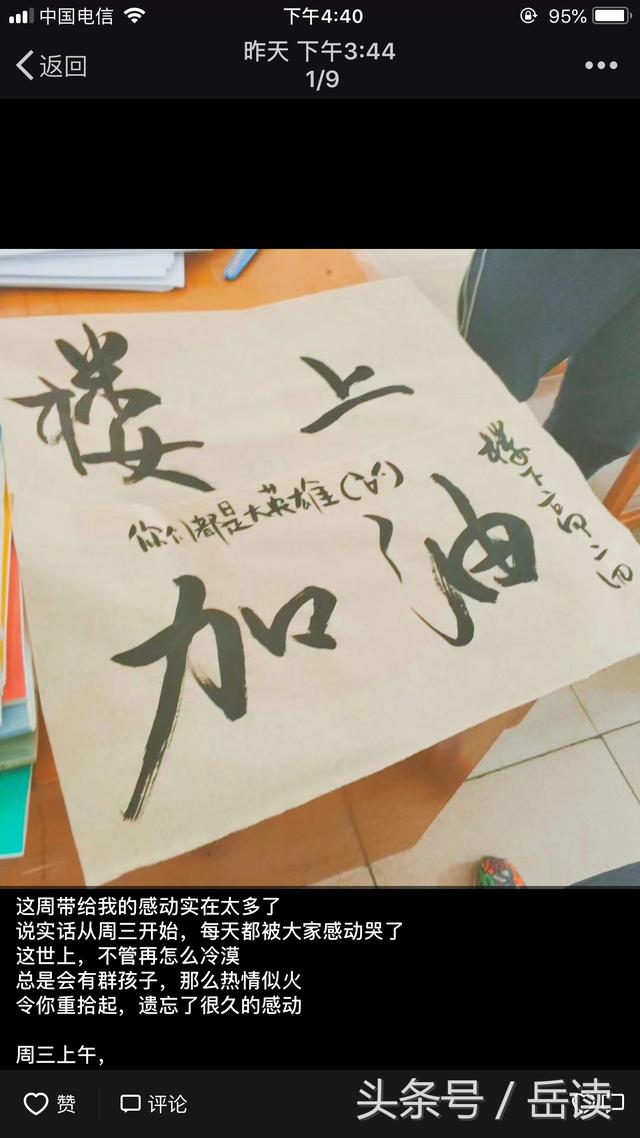 中国电信
下午4:40
95%
返回
昨天 下午3:44
1/9
楼上
你们都是大英雄
加油
楼下
这周带给我的感动实在太多了
说实话从周三开始，每天都被大家感动哭了
这世上，不管再怎么冷漠
总是会有群孩子，那么热情似火
令你重拾起，遗忘了很久的感动
周三上午，
赞
评论
头条号 / 岳读